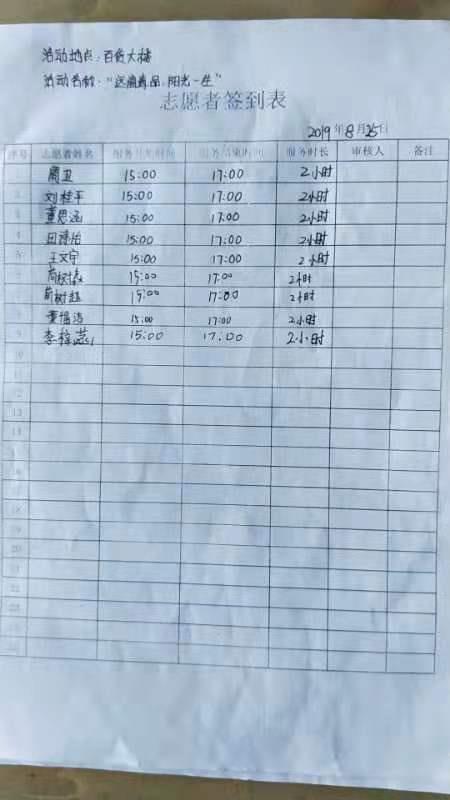 活动地点：百货大楼
活动名称："远离毒品，阳光一生"
志愿者签到表
2019年8月25日
序号 志愿者姓名 服务开始时间 服务结束时间 服务时长 审核人 备注
1 周卫 15:00 17:00 2小时
2 刘桂平 15:00 17:00 2小时
3 董思涵 15:00 17:00 2小时
4 田诗怡 15:00 17:00 2小时
5 王文宁 15:00 17:00 2小时
15:00 17:00 2小时
15:00 17:00 2小时
15:00 17:00 2小时
9 15:00 17:00 2小时
10
11
12
13
14
15
16
17
18
19
20
21
22
23